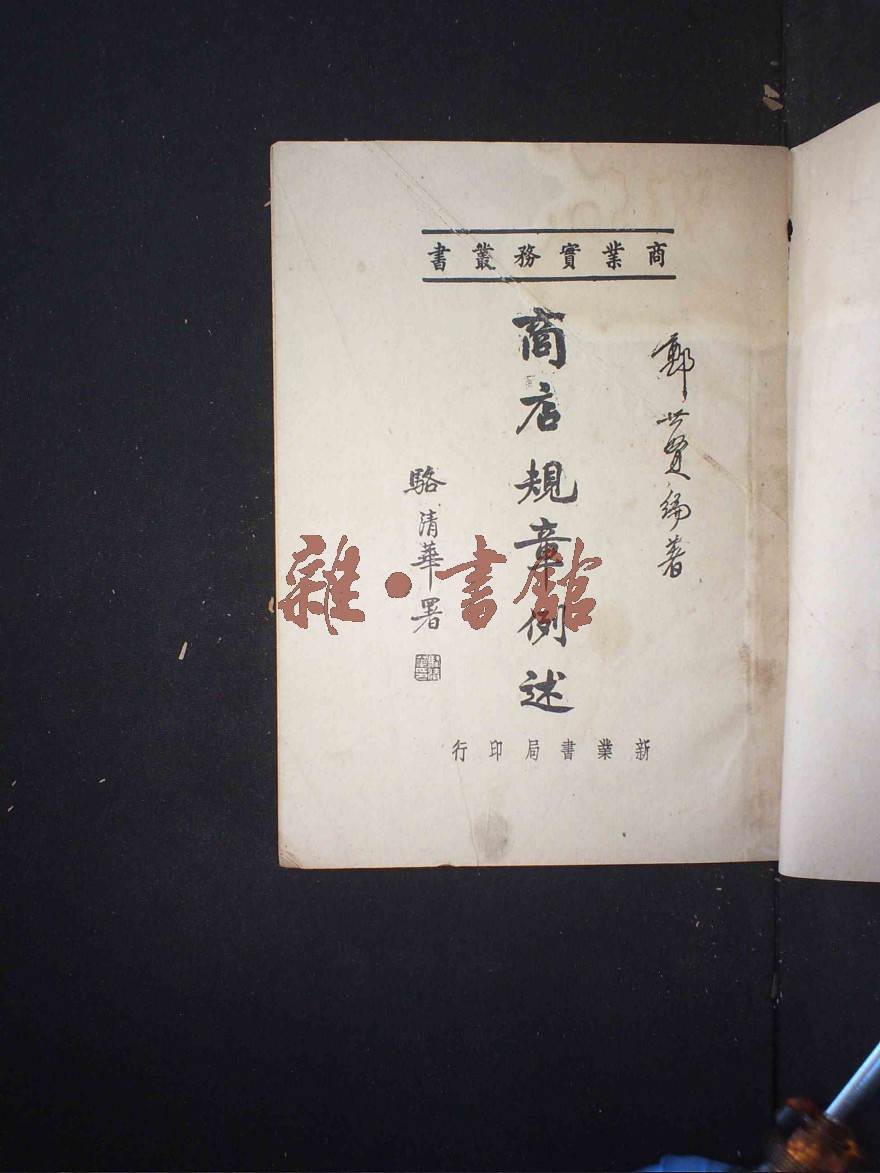 商業實務叢書
鄭世賢編著
商店規章例述
駱清華署
新業書局印行
雜·書館